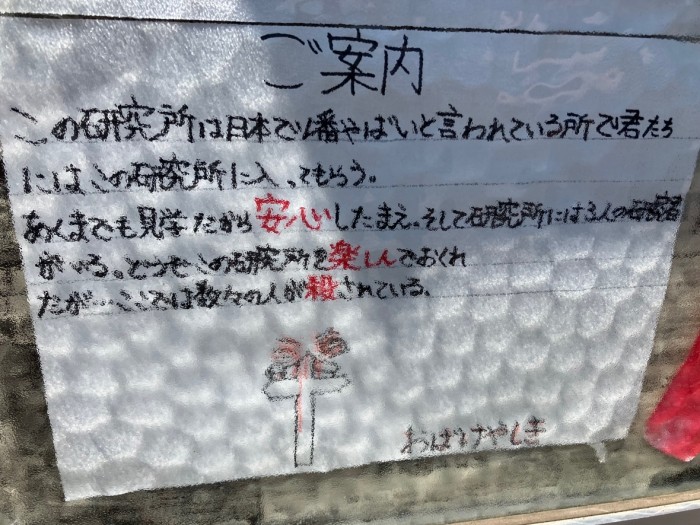 ご案内
この研究所は日本で1番やばいと言われている所で君たち
にはこの研究所に入ってもらう。
あくまでも見学だから安心したまえ。そして研究所には3人の研究者
がいる。どうぞこの研究所を楽しんでおくれ
だが…ここでは数々の人が殺されている。
おばけやしき